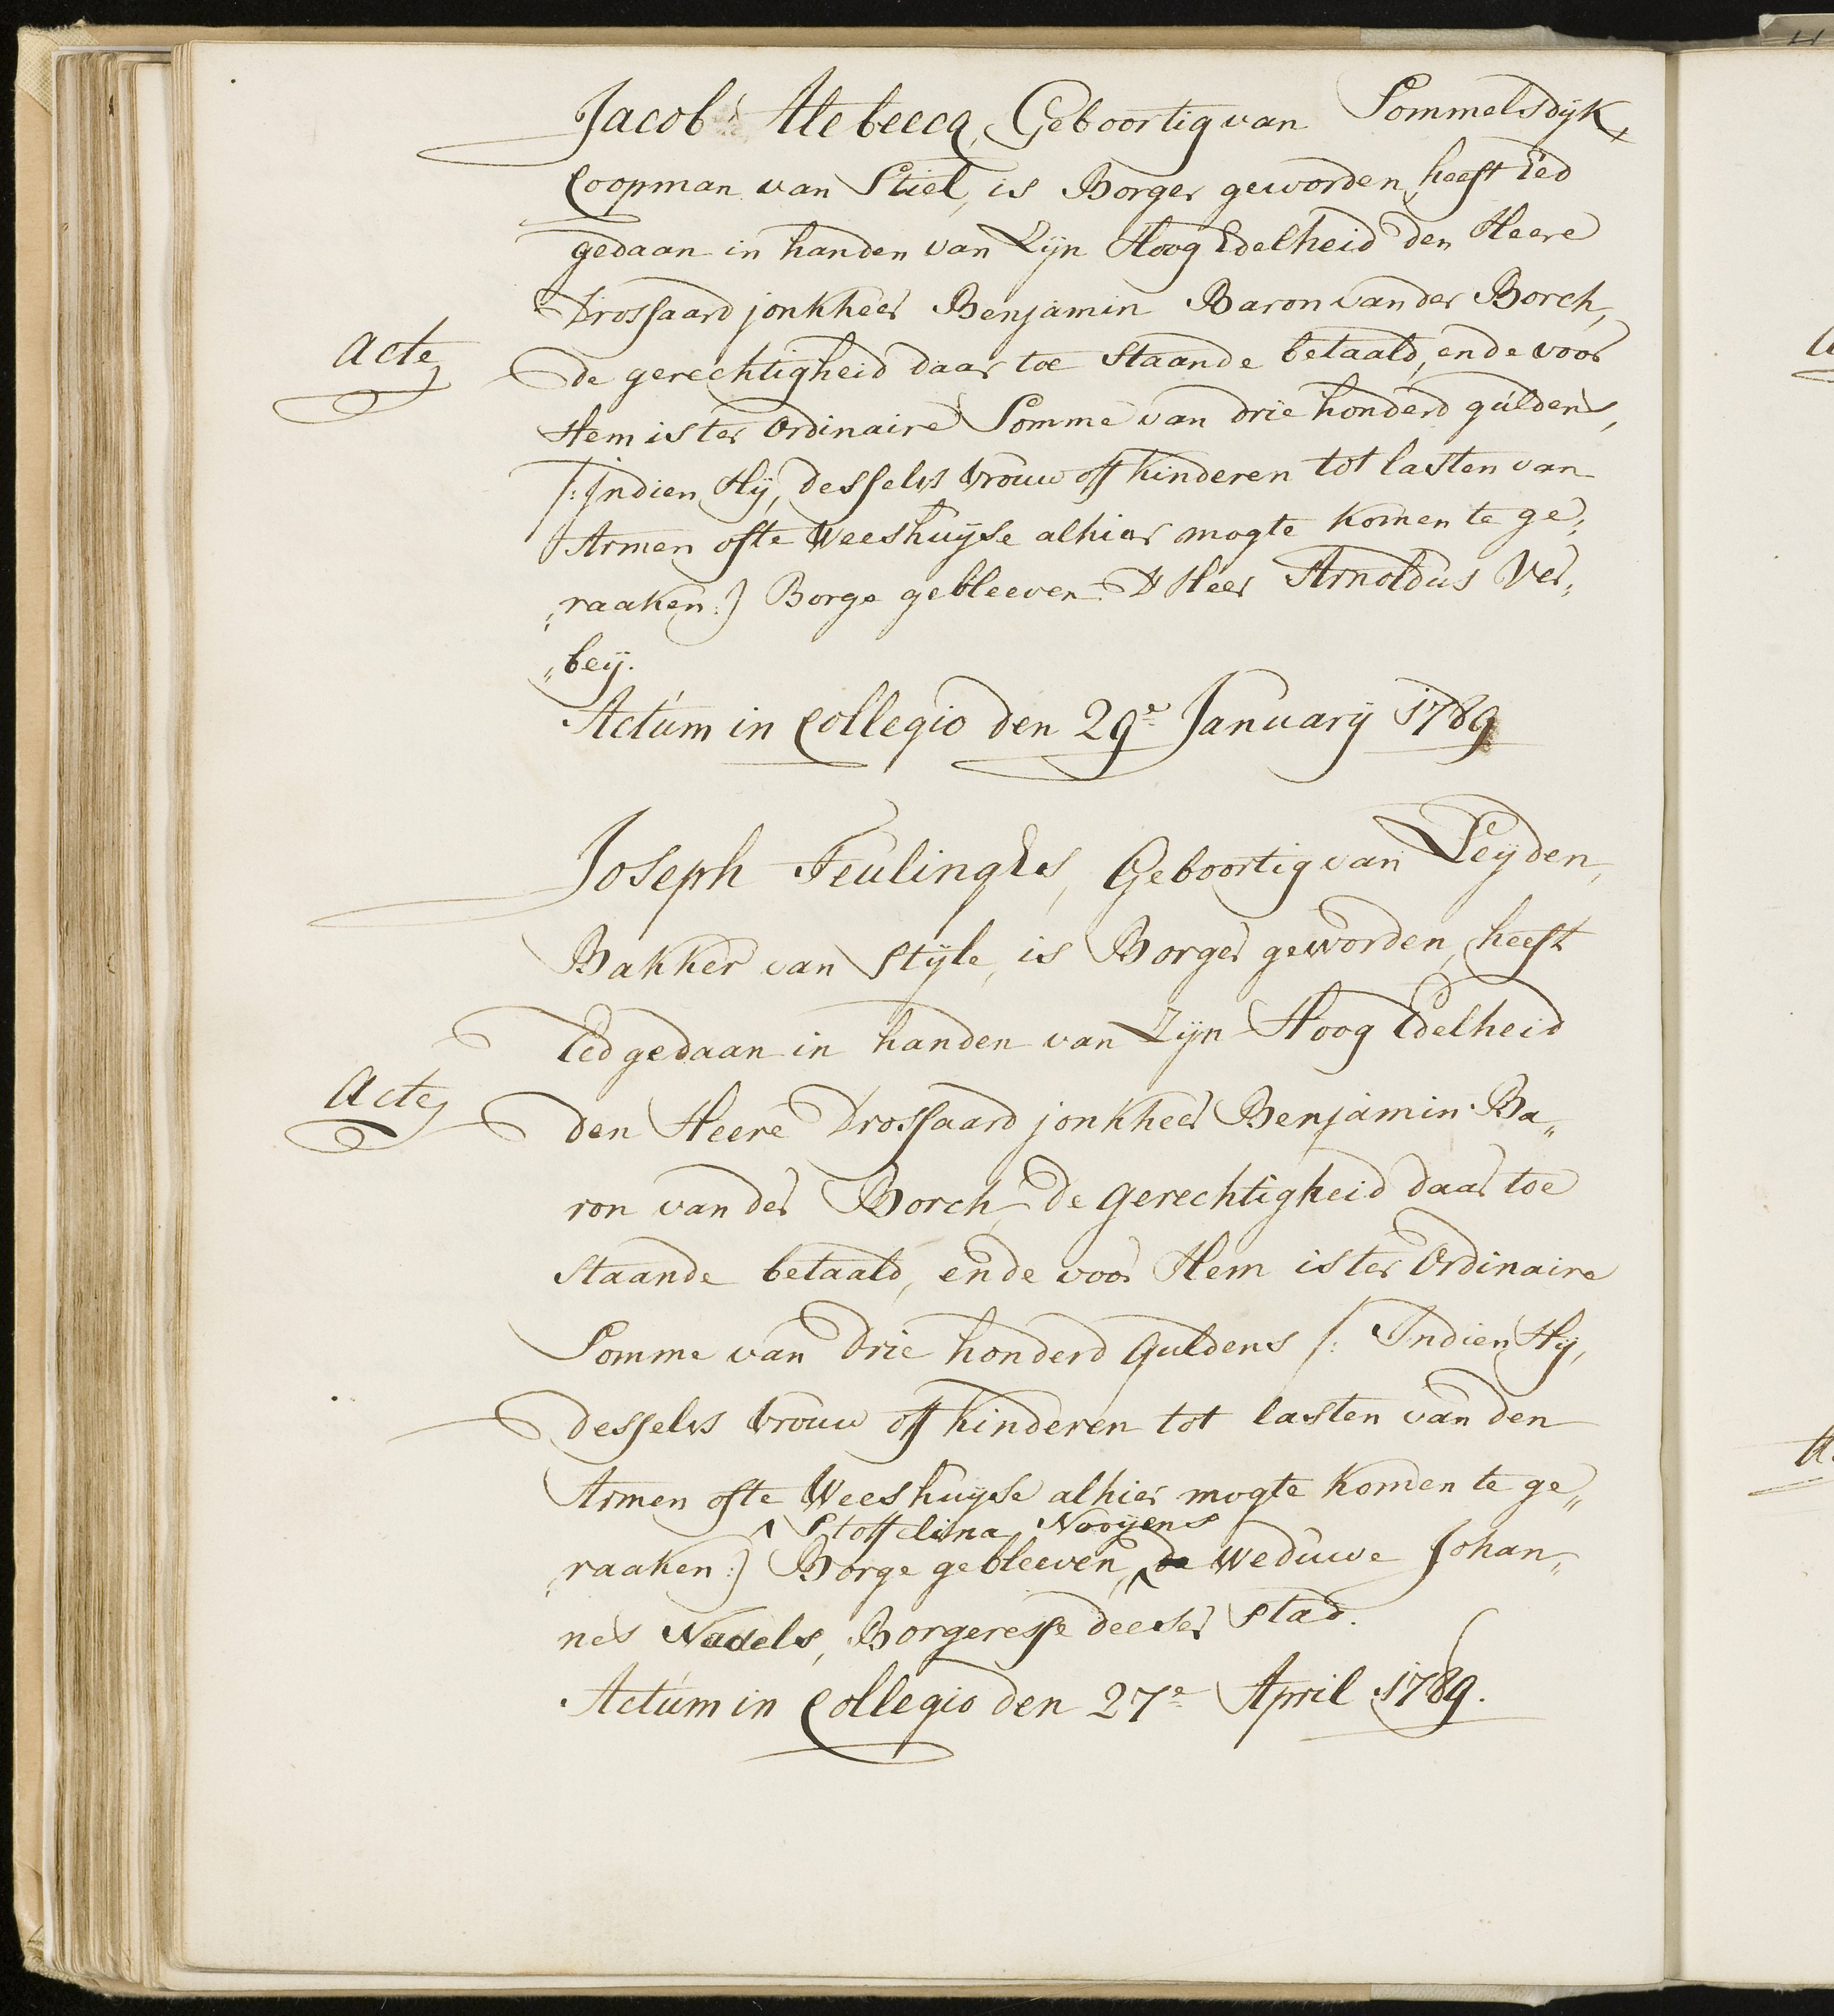 Jacob Alebeecq, Geboortig van Sommelsdijk,
Coopman van Stiel, is Borger geworden, heeft Eed
gedaan in handen van Zijn Hoog Edelheid den Heere
Drossaard jonkheer Benjamin Baron van der Borch,
Acte
de gerechtigheid daar toe Staande betaald, ende voor
Hem is ter Ordinaire Somme van drie honderd guldens,
/: Indien Hij, desselvs vrouw off kinderen tot lasten van
Armen ofte Weeshuijse alhier mogte komen te ge„
„raaken :) Borge gebleeven D'Heer Arnoldus Ver„
„beij.
Actum in Collegio den 29e January 1789
Joseph Teulingks, Geboortig van Leijden,
Bakker van Stijle, is Borger geworden, heeft
Eed gedaan in handen van Zijn Hoog Edelheid
Acte
den Heere Drossaard jonkheer Benjamin Ba„
ron van der Borch, de gerechtigheid daar toe
Staande betaald, ende voor Hem is ter Ordinaire
Somme van drie honderd guldens /: Indien Hij,
desselvs vrouw off kinderen tot lasten van den
Armen ofte Weeshuijse alhier mogte komen te ge„
^ Stoffelina Nooijens
„raaken :) Borge gebleeven, ^ de weduwe Johan„
nes Nadels, Borgeresse deeser Stad.
Actum in Collegio den 27e April 1789.